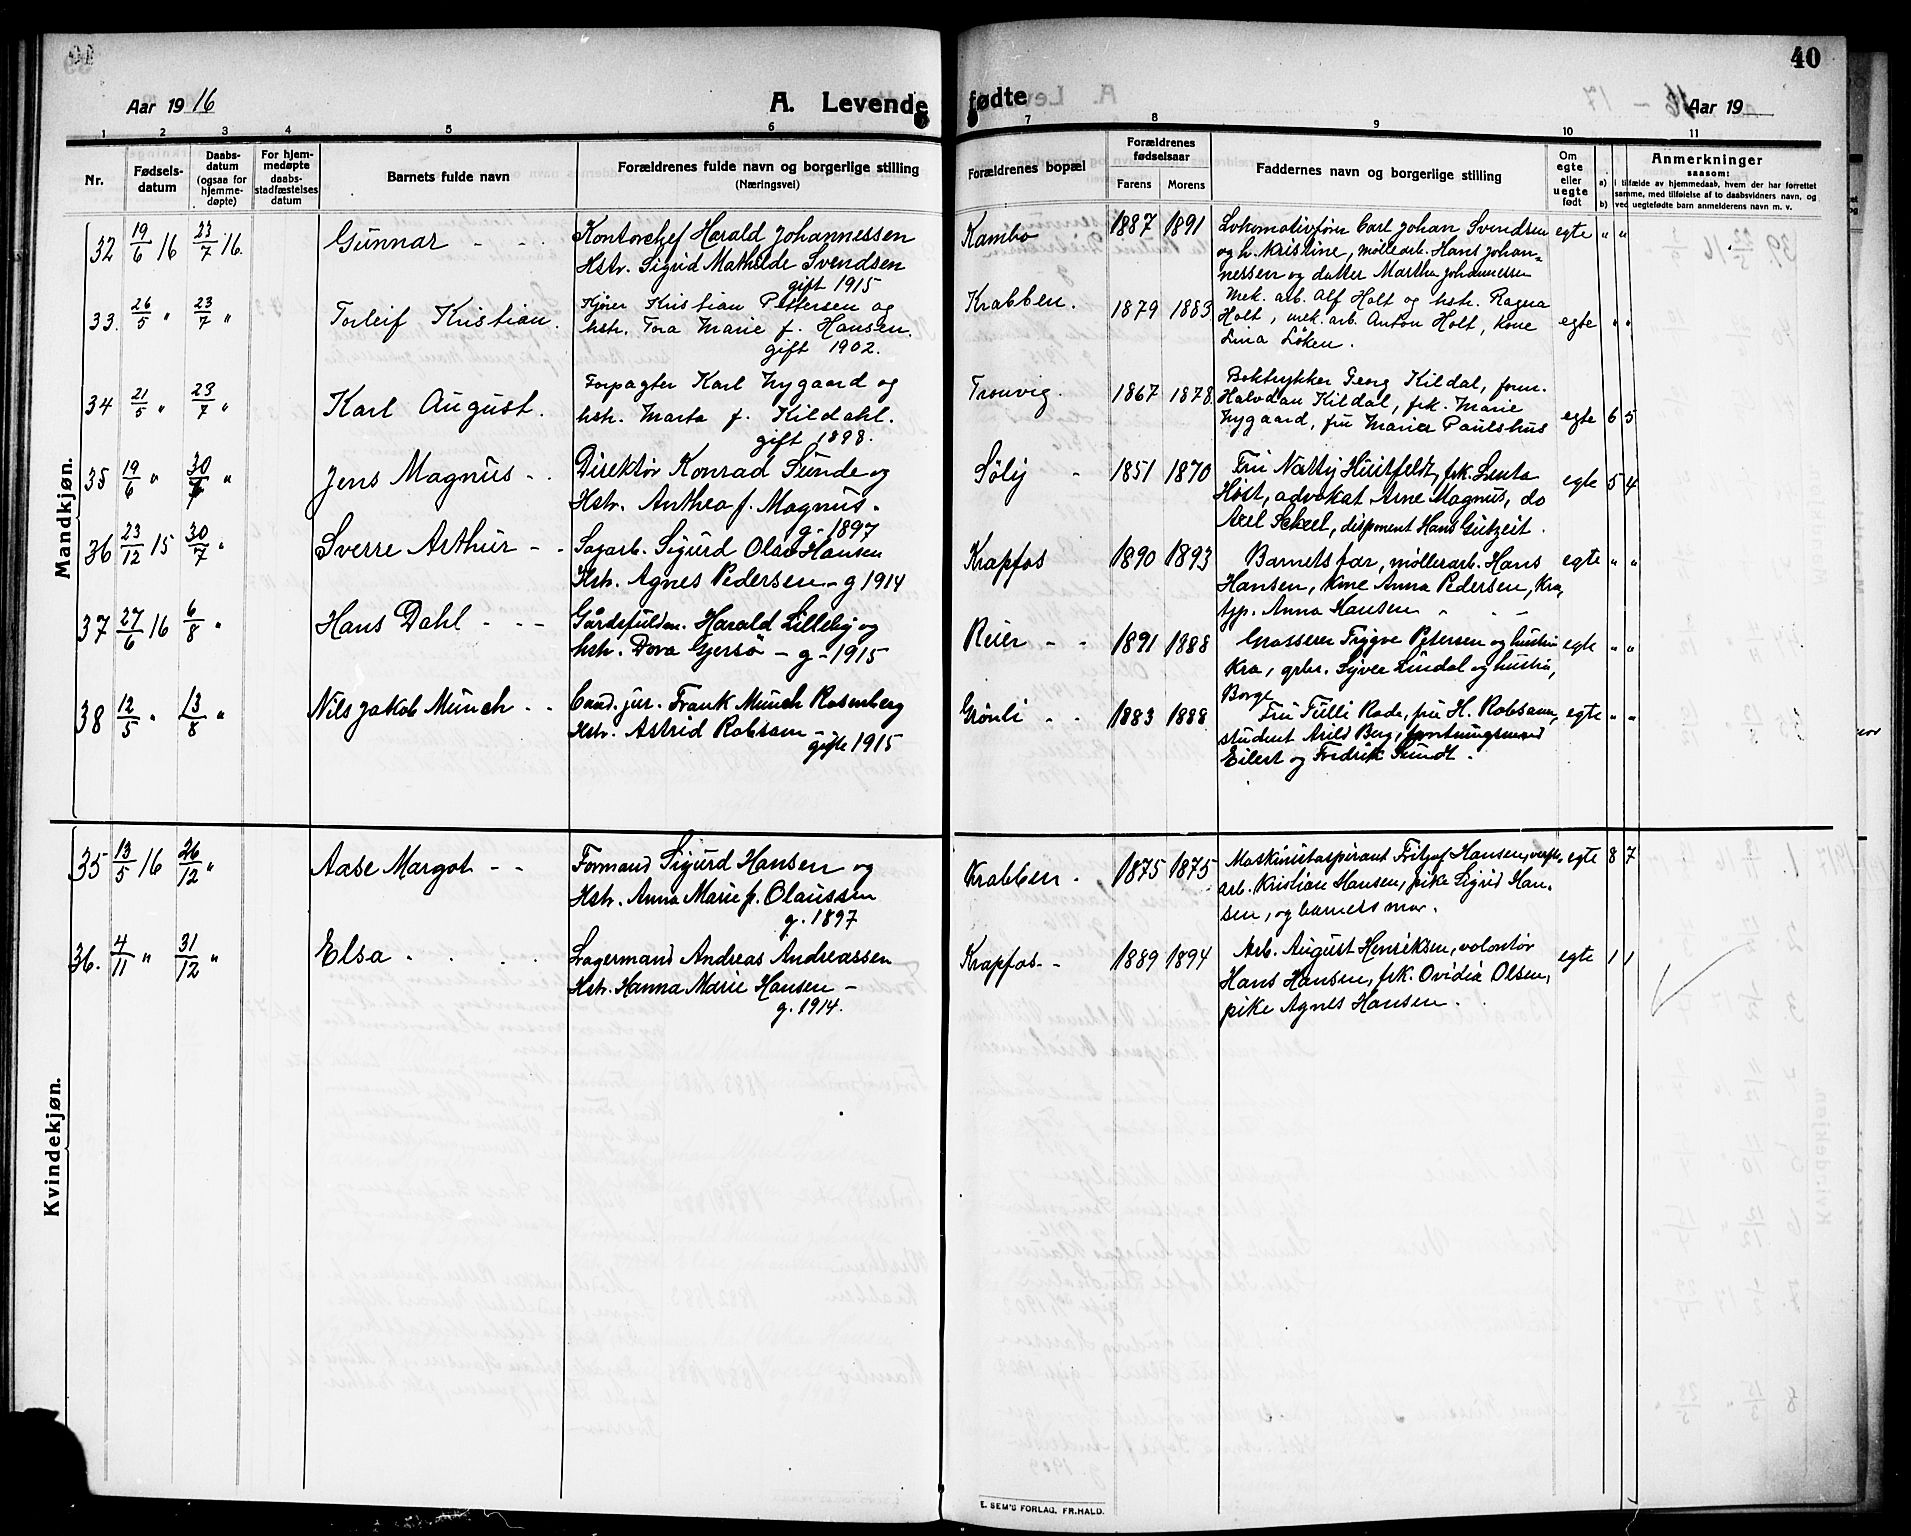 40
Aar 1916
A. Levende fødte
Aar 19
1 2 3 4 5 6 7 8 9 10 11
Nr.
Fødsels-
datum
Daabs-
datum
(ogsaa for
hjemme-
døpte)
For hjem-
medøpte
daabs-
stadfæstelses
datum
Barnets fulde navn
Forældrenes fulde navn og borgerlige stilling
(Næringsvei)
Forældrenes bopæl
Forældrenes
fødselsaar
Farens Morens
Faddernes navn og borgerlige stilling
Om
egte
eller
uegte
født
a)
b)
Anmerkninger
saasom:
I tilfælde av hjemmedaab, hvem der har forrettet
samme, med tilføielse af to daabsvidners navn, og
ved uegtefødte barn anmelderens navn m. v.
Mandkjøn.
32 19/6 16 23/7 16. Gunnar - - -
Kontorchef Harald Johannessen
Hstr. Sigrid Mathilde Svendsen
gift 1915
Kambo 1887 1891
Lokomotivfører Carl Johan Svendsen
og h. Kristine, møllearb. Hans Johan-
nessen og datter Martha Johannessen
egte " "
33. 26/5 " 23/7 " Torleif Kristian.
Kjører Kristian Pettersen og
hstr. Tora Marie f. Hansen.
gift 1902.
Krabben. 1879 1883
Mek. arb. Alf Holt og hstr. Ragna
Holt, mek. arb. Anton Holt, kone
Lina Løken.
egte " "
34 21/5 " 23/7 " Karl August.
Forpagter Karl Nygaard og
hstr. Marta f. Kildahl.
gift 1898.
Tronvig. 1867 1878
Boktrykker Georg Kildal, form.
Halvdan Kildal, frk. Marie
Nygaard, fru Marie Paulshus
egte 6 5
35 19/6 " 30/7 " Jens Magnus - -
Direktør Konrad Sunde og
Hstr. Anthea f. Magnus.
g- 1897
Sølij - 1851 1870
Fru Natty Huitfeldt, frk. Lenta
Høst, advokat Arne Magnus, do
Axel Scheel, disponent Hans Gutzeit.
egte 5 4
36 23/12 15 30/7 " Sverre Arthur - -
Sagarb. Sigurd Olav Hansen
Hstr. Agnes Pedersen - g 1914
Krapfos 1890 1893
Barnets far, møllerarb. Hans
Hansen, kone Anna Pedersen, Kra,
typ. Anna Hansen - - -
egte " "
37 27/6 16 6/8 " Hans Dahl - - -
Gårdsfuldm. Harald Lilleby og
hstr. Dora Gjersø - g - 1915
Reier - - 1891 1888
Grosserer Trygve Petersen og hustru
Kra, grbr. Syver Lundal og hustru,
Borge
egte " "
38 12/5 " 13/8 " Nils Jakob Münch - -
Cand. jur. Frank Münch Rosenberg
Hstr. Astrid Robsam -
gifte 1915
Grønli - - 1883 1888
Fru Tulli Rode, fru H. Robsam,
student Arild Berg,
Eilert og Fredrik Sundt.
egte " "
Kvindekjøn.
35 13/5 16 26/12 " Aase Margot - -
Formand Sigurd Hansen og
Hstr. Anna Marie f. Olaussen
g. 1897
Krabben - 1875 1875
Maskinistaspirant Fritjof Hansen, verfts-
arb. Kristian Hansen, pike Sigrid Han-
sen, og barnets mor.
egte 8 7
36. 4/11 " 31/12 " Elsa - - - -
Lagermand Andreas Andreassen
Hstr. Hanna Marie Hansen -
g. 1914.
Krapfos - - 1889 1894
Arb. August Henriksen, volontør
Hans Hansen, frk. Ovidia Olsen,
pike Agnes Hansen.
egte 1 1
E. SEM'S FORLAG, FR.HALD.